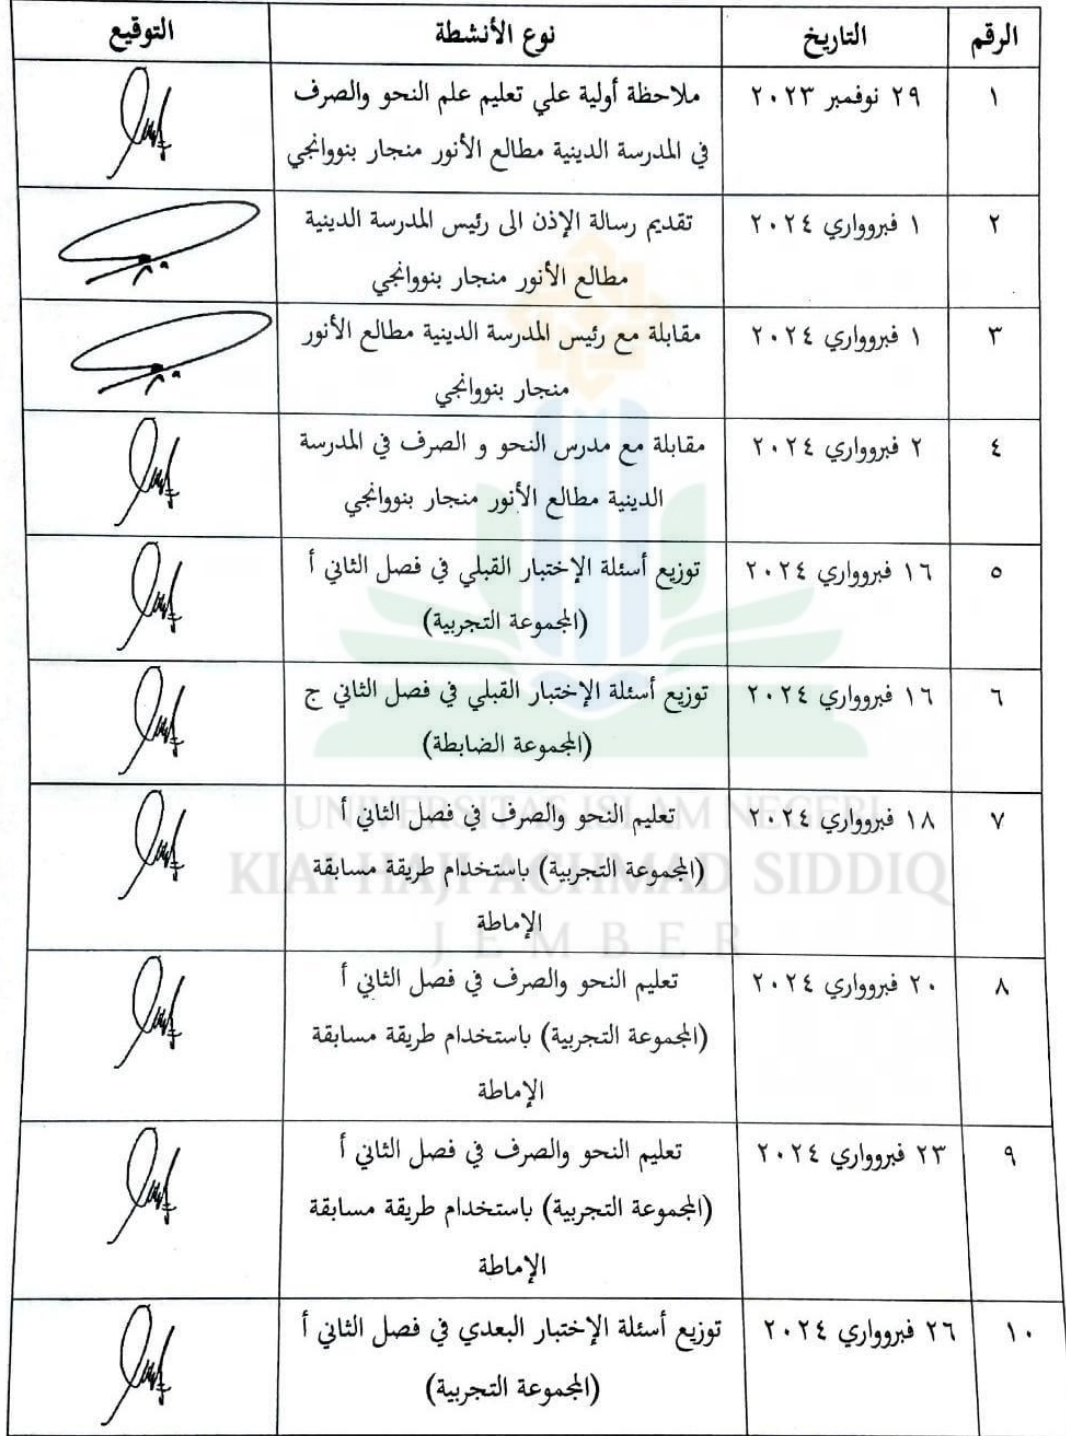 الرقم التاريخ نوع الأنشطة التوقيع
١ ٢٩ نوفمبر ٢٠٢٣ ملاحظة أولية علي تعليم علم النحو والصرف
في المدرسة الدينية مطالع الأنور منجار بنووانجي
٢ ١ فبروواري ٢٠٢٤ تقديم رسالة الإذن الى رئيس المدرسة الدينية
مطالع الأنور منجار بنووانجي
٣ ١ فبروواري ٢٠٢٤ مقابلة مع رئيس المدرسة الدينية مطالع الأنور
منجار بنووانجي
٤ ٢ فبروواري ٢٠٢٤ مقابلة مع مدرس النحو و الصرف في المدرسة
الدينية مطالع الأنور منجار بنووانجي
٥ ١٦ فبروواري ٢٠٢٤ توزيع أسئلة الإختبار القبلي في فصل الثاني أ
(المجموعة التجربية)
٦ ١٦ فبروواري ٢٠٢٤ توزيع أسئلة الإختبار القبلي في فصل الثاني ج
(المجموعة الضابطة)
٧ ١٨ فبروواري ٢٠٢٤ تعليم النحو والصرف في فصل الثاني أ
(المجموعة التجربية) باستخدام طريقة مسابقة
الإماطة
٨ ٢٠ فبروواري ٢٠٢٤ تعليم النحو والصرف في فصل الثاني أ
(المجموعة التجربية) باستخدام طريقة مسابقة
الإماطة
٩ ٢٣ فبروواري ٢٠٢٤ تعليم النحو والصرف في فصل الثاني أ
(المجموعة التجربية) باستخدام طريقة مسابقة
الإماطة
١٠ ٢٦ فبروواري ٢٠٢٤ توزيع أسئلة الإختبار البعدي في فصل الثاني أ
(المجموعة التجربية)
UNIVERSITAS ISLAM NEGERI
KIAI HAJI ACHMAD SIDDIQ
JEMBER